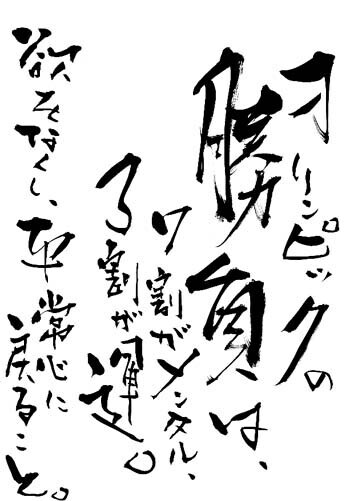 オリンピックの
勝負は、
7割がメンタル、
3割が運。
欲をなくし、平常心に
戻ること。